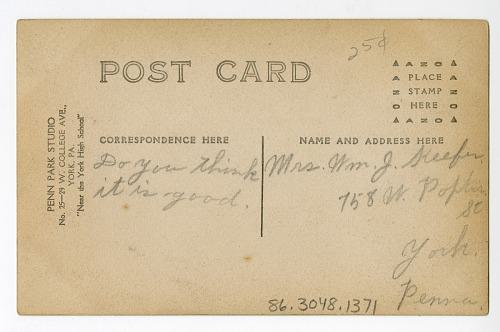 25¢
POST CARD
AZNO
PLACE
STAMP
HERE
AZNO
PENN PARK STUDIO
No. 25-29 W. COLLEGE AVE.,
YORK, PA.
"Near the York High School"
CORRESPONDENCE HERE
Do you think
it is good.
NAME AND ADDRESS HERE
Mrs. Wm. J. Keefer,
758 W. Poplar
St
York.
Penna.
86.3048.1371